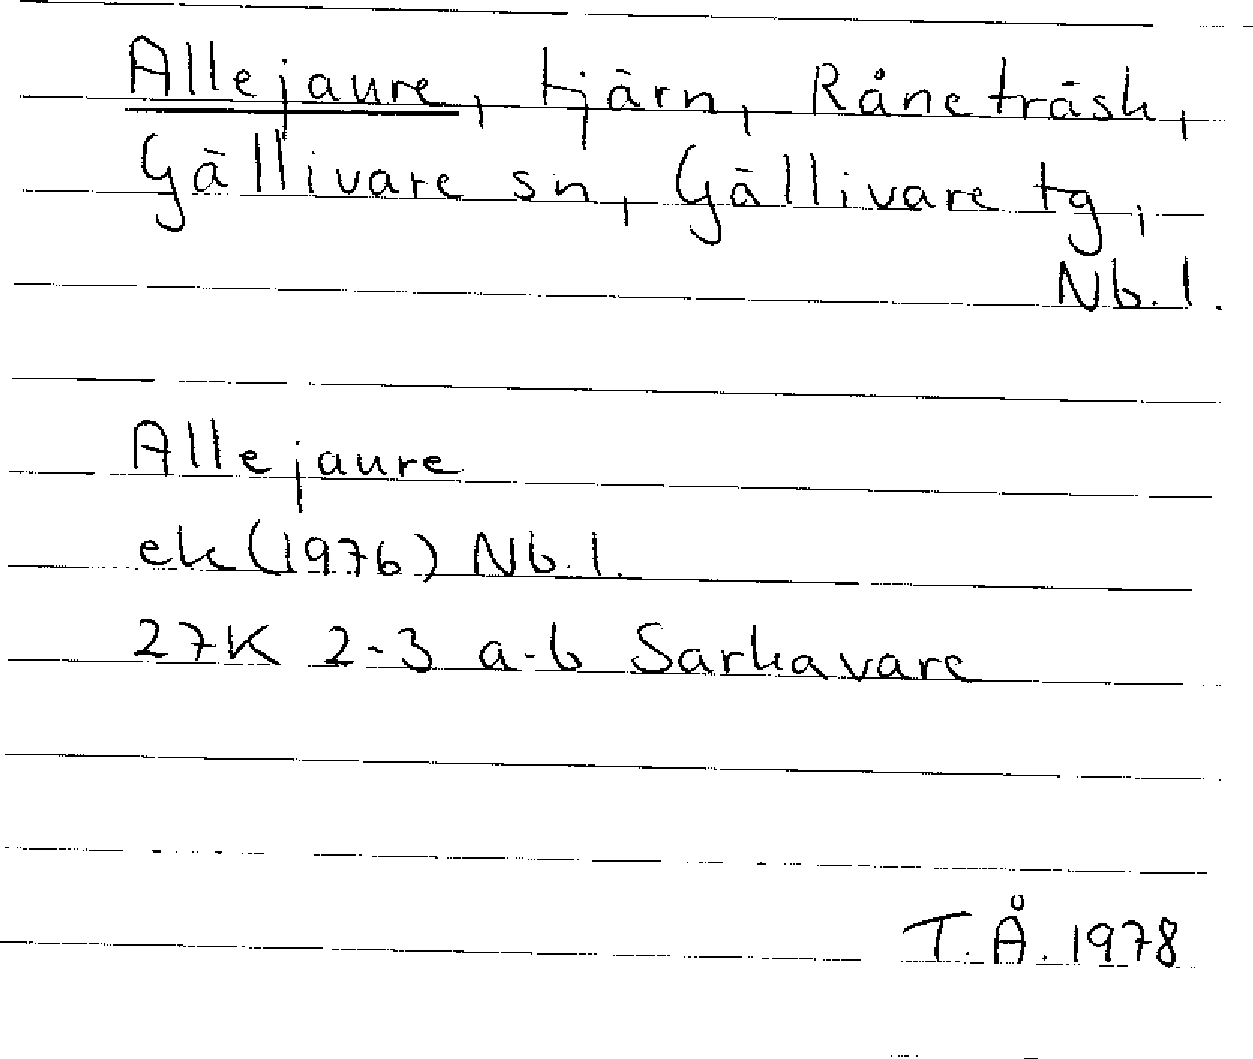 Allejaure, tjärn, Råneträsk,
Gällivare sn, Gällivare tg,
Nb.l.
Allejaure
ek (1976) Nb.l.
27K 2-3 a-b Sarkavare
T.Å. 1978